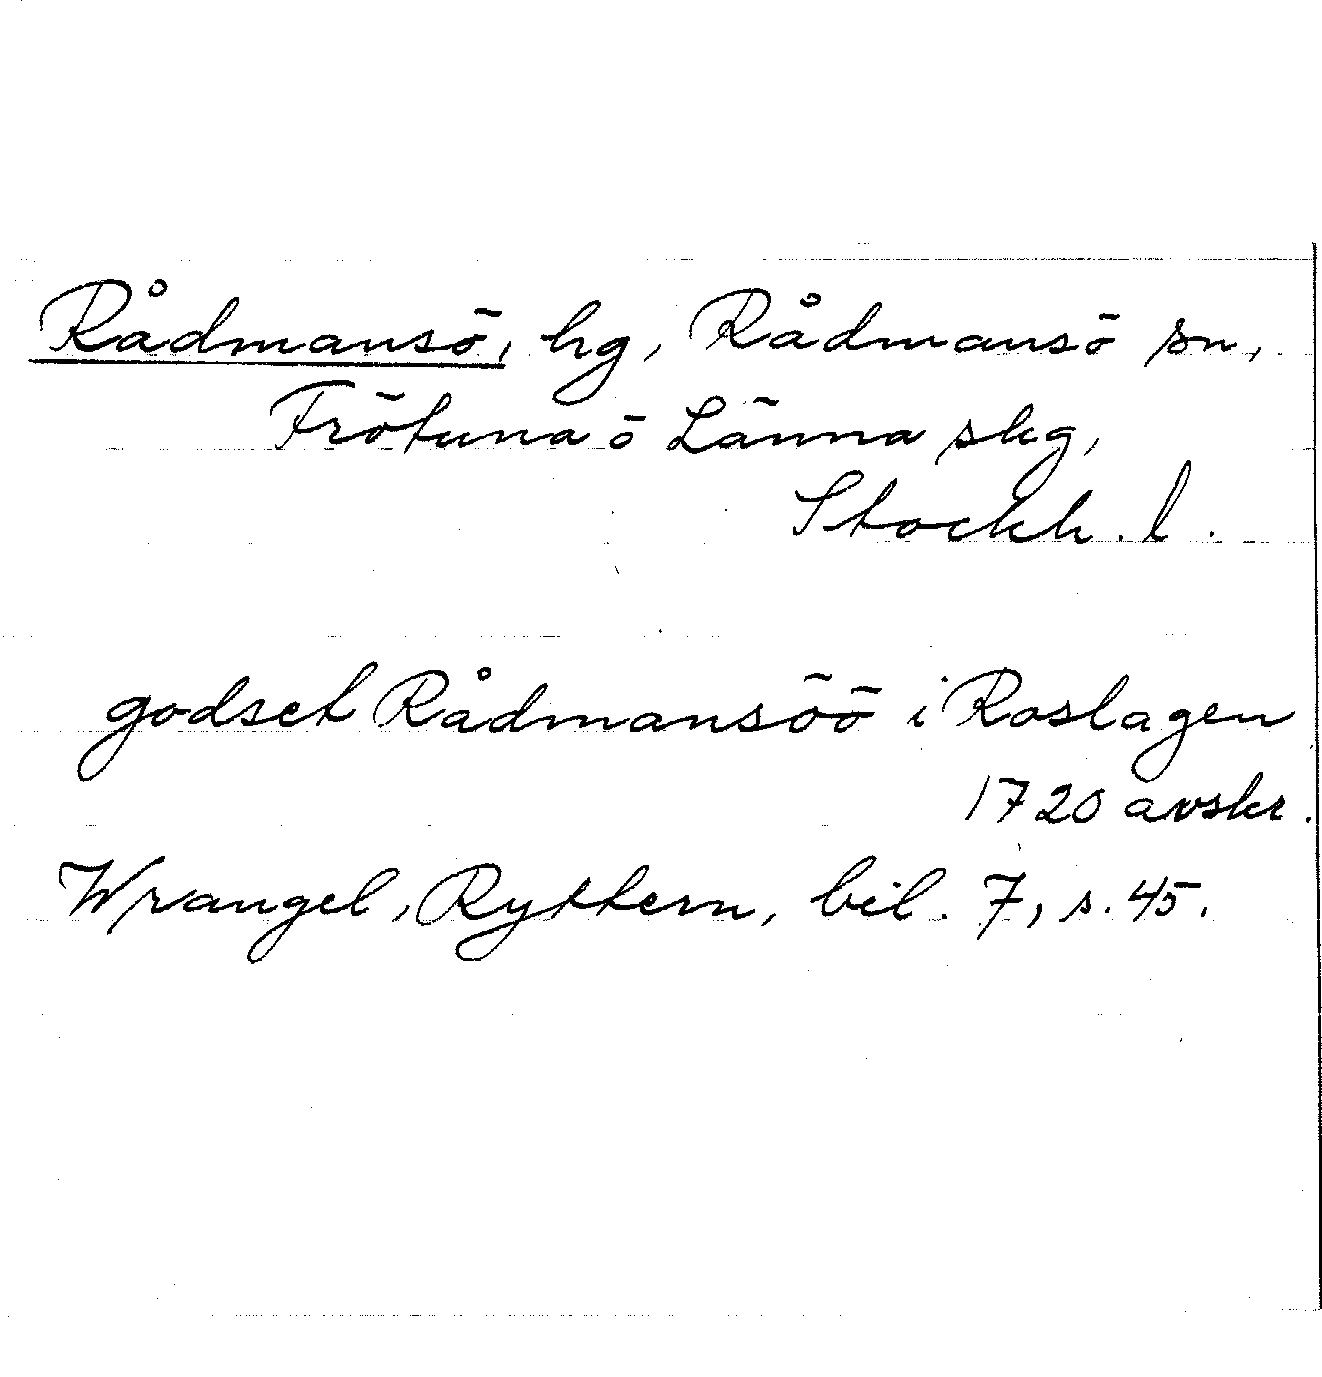 Rådmansö, hg, Rådmansö sn,
Frötuna ö Länna skg,
Stockh. l.
godset Rådmansöö i Roslagen
1720 avskr.
Wrangel, Ryttern, bil. 7, s. 45.